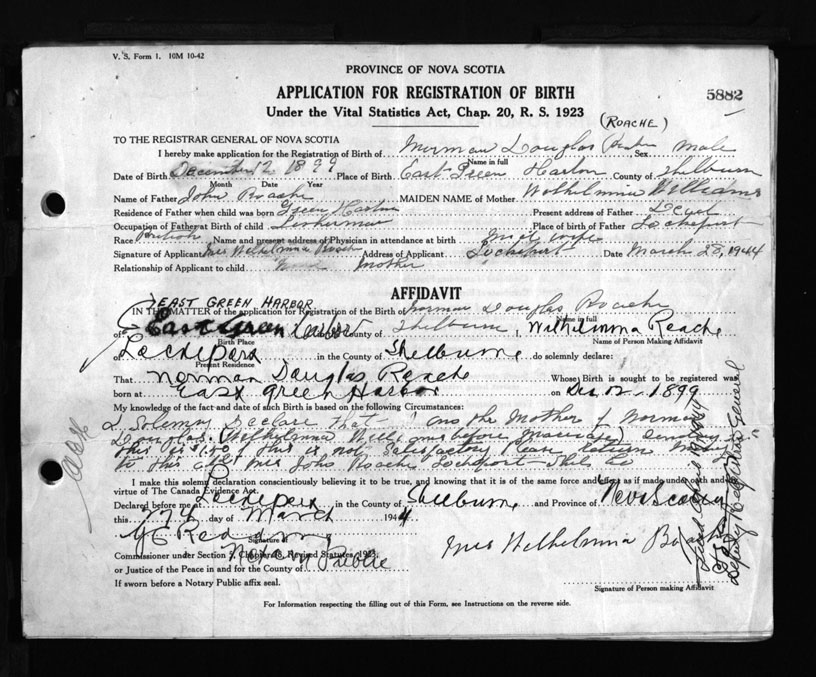 V. S. Form 1. 10M 10-42
PROVINCE OF NOVA SCOTIA
APPLICATION FOR REGISTRATION OF BIRTH
5882
Under the Vital Statistics Act, Chap. 20, R. S. 1923
(ROACHE)
TO THE REGISTRAR GENERAL OF NOVA SCOTIA
I hereby make application for the Registration of Birth of Norman Douglas Sex Male
Name in full
Date of Birth December 12 1899 Place of Birth East Green Harbor County of Shelburn
Month Date Year
Name of Father John Roache MAIDEN NAME of Mother Wilhelmina Williams
Residence of Father when child was born Green Harbor Present address of Father
Occupation of Father at Birth of child Fisherman Place of birth of Father Lockeport
Race British Name and present address of Physician in attendance at birth Mid wife
Signature of Applicant Mrs Wilhelmina Roache Address of Applicant Lockeport Date March 28, 1944
Relationship of Applicant to child Mother
AFFIDAVIT
EAST GREEN HARBOR
IN THE MATTER of the application for Registration of the Birth of Norman Douglas Roache
Name in full
of East Green Harbor County of Shelburne, Wilhelmina Roache
Birth Place Name of Person Making Affidavit
Lockeport in the County of Shelburne do solemnly declare:
Present Residence
That Norman Douglas Roache Whose Birth is sought to be registered was
born at East Green Harbor on Dec 12, 1899
My knowledge of the fact and date of such Birth is based on the following Circumstances:
I Solemnly Declare that I am the Mother of Norman
Douglas (Wilhelmina Williams before Marriage)
this is not satisfactory Please return
to this Mrs John Roache Lockeport
I make this solemn declaration conscientiously believing it to be true, and knowing that it is of the same force and effect as if made under oath and
virtue of The Canada Evidence Act.
Declared before me at Lockeport in the County of Shelburne and Province of Nova Scotia
this 27th day of March 1944
Signature of
Commissioner under Section 7, Chapter 8, Revised Statutes, 1923,
Notary Public
or Justice of the Peace in and for the County of
Mrs Wilhelmina Roache
If sworn before a Notary Public affix seal.
Signature of Person making Affidavit
For Information respecting the filling out of this Form, see Instructions on the reverse side.
Deputy Registrar General